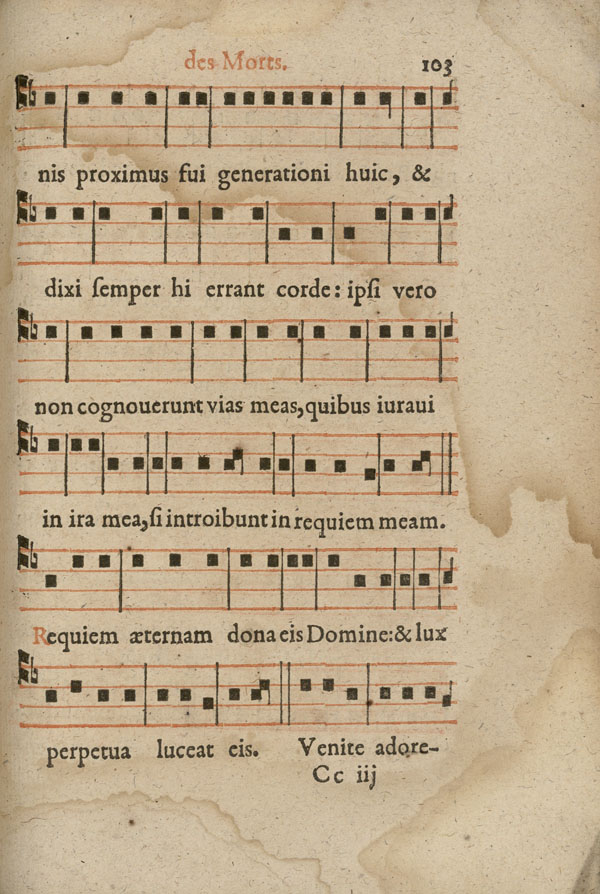 des Morts. 103
nis proximus fui generationi huic, &
dixi ſemper hi errant corde: ipſi vero
non cognouerunt vias meas, quibus iuraui
in ira mea, ſi introibunt in requiem meam.
Requiem æternam dona eis Domine: & lux
perpetua luceat eis. Venite adore-
Cc iij